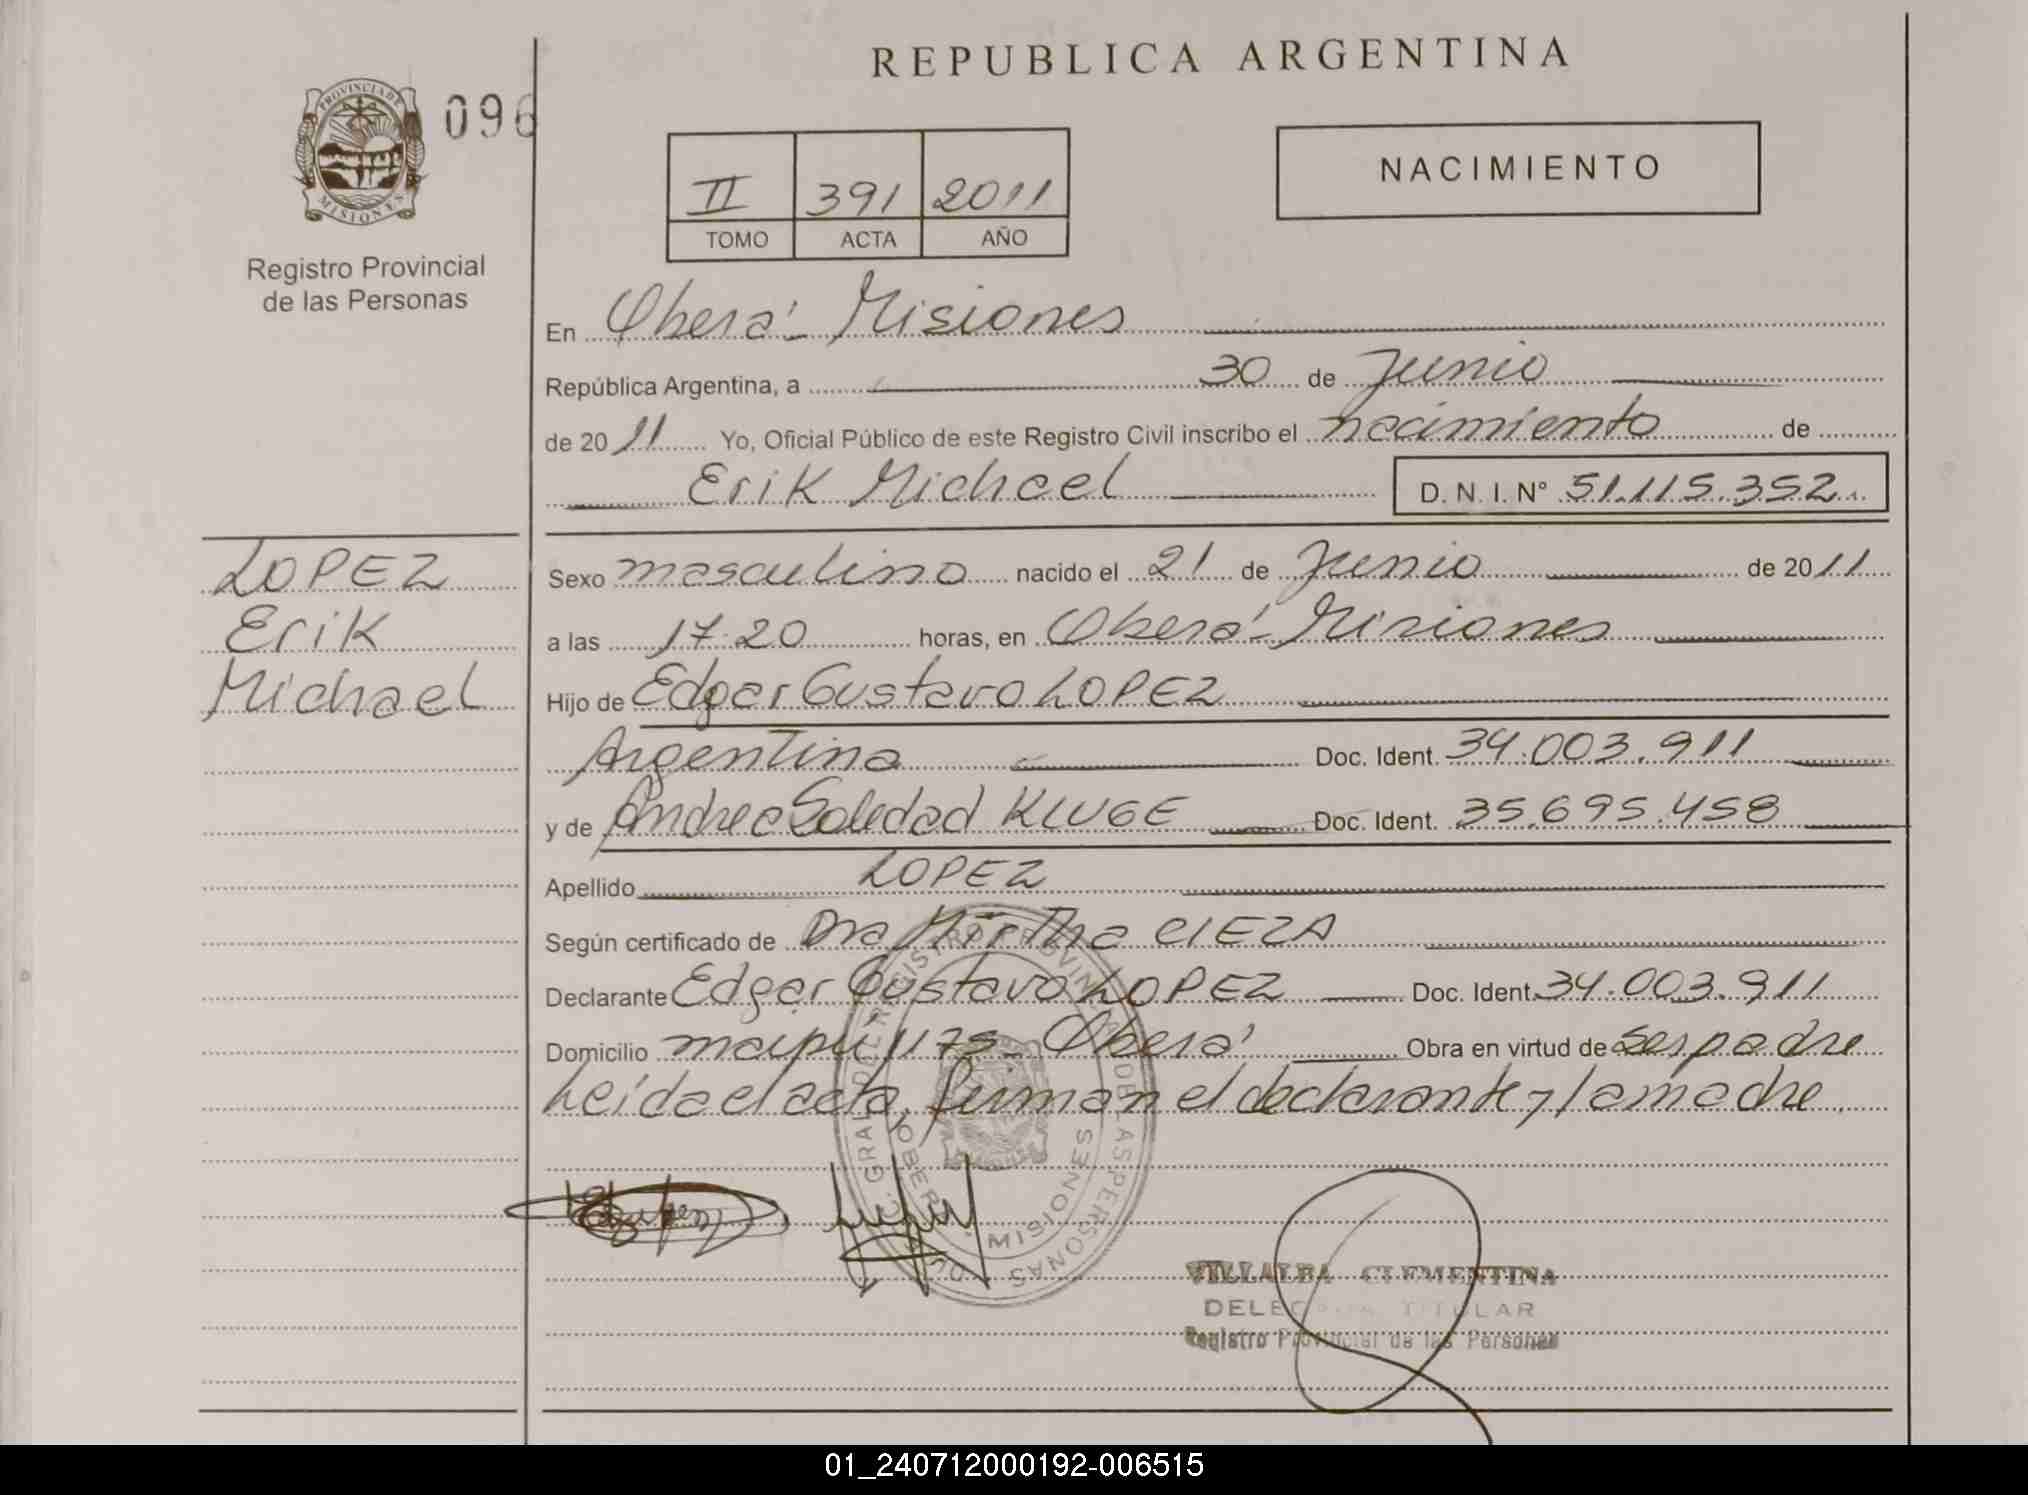 REPUBLICA ARGENTINA
PROVINCIA DE MISIONES
096
Registro Provincial
de las Personas
II 391 2011
TOMO ACTA AÑO
NACIMIENTO
En Oberá - Misiones
República Argentina, a 30 de Junio
de 2011 Yo, Oficial Público de este Registro Civil inscribo el nacimiento de
Erik Michael D. N. I. N° 51.115.352
LOPEZ
Erik
Michael
Sexo masculino nacido el 21 de Junio de 2011
a las 17:20 horas, en Oberá - Misiones
Hijo de Edgar Gustavo LOPEZ
Argentina Doc. Ident. 34.003.911
y de Andrea Soledad KLUGE Doc. Ident. 35.695.458
Apellido LOPEZ
Según certificado de Dra Mirtha CIEZA
Declarante Edgar Gustavo LOPEZ Doc. Ident. 34.003.911
Domicilio maipú 1175 - Oberá Obra en virtud de ser padre
Leída el acta, firman el declarante y la madre.
REGISTRO PROVINCIAL DE LAS PERSONAS
OBERÁ MISIONES
VILLALBA CLEMENTINA
DELEGADA TITULAR
Registro Provincial de las Personas
01_240712000192-006515